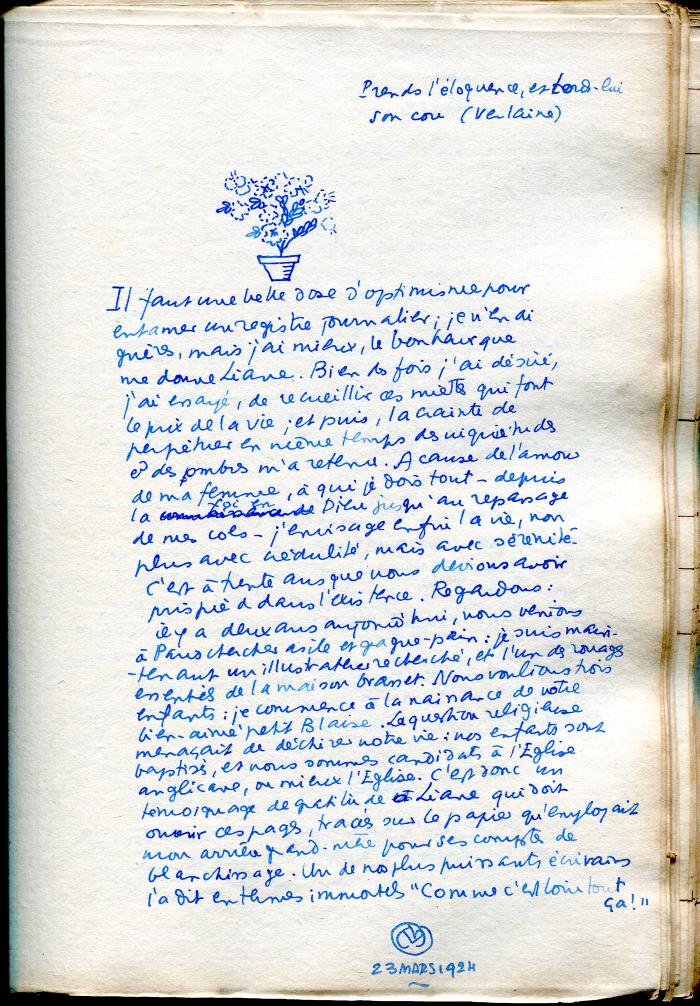 Prends l'éloquence, et tord-lui
son cou (Verlaine)
Il faut une belle dose d'optimisme pour
entamer un registre journalier ; je n'en ai
guères, mais j'ai mieux, le bonheur que
me donne Liane. Bien des fois j'ai désiré,
j'ai essayé, de recueillir ces miettes qui font
le prix de la vie ; et puis, la crainte de
perpétuer en même temps des inquiétudes
et des ombres m'a retenu. A cause de l'amour
de ma femme, à qui je dois tout - depuis
la foi en Dieu jusqu'au repassage
de mes cols - j'envisage enfin la vie, non
plus avec crédulité, mais avec sérénité.
C'est à trente ans que nous devions avoir
pris pied dans l'existence. Regardons :
il y a deux ans aujourd'hui, nous venions
à Paris chercher asile et gagne-pain : je suis main-
-tenant un illustrateur recherché, et l'un des rouages
essentiels de la maison Draeger. Nous voulions trois
enfants : je commence à la naissance de notre
bien-aimé petit Blaise. La question religieuse
menaçait de déchirer notre vie : nos enfants sont
baptisés, et nous sommes candidats à l'Eglise
anglicane, ou mieux l'Eglise. C'est donc un
témoignage de gratitude à Liane qui doit
ouvrir ces pages, tracés sur le papier qu'employait
mon arrière grand-mère pour ses comptes de
blanchissage. Un de nos plus puissants écrivains
l'a dit en termes immortels "Comme c'est loin tout
ça!"
23 MARS 1924